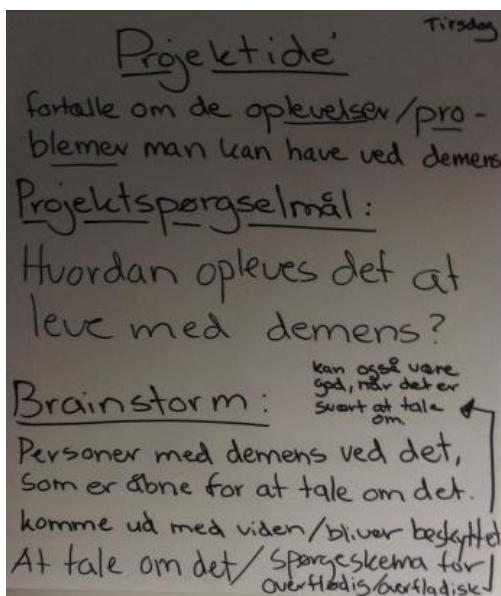 Tirsdag
Projektidé
fortalle om de oplevelser/pro-
blemer man kan have ved demens
Projektspørgselmål:
Hvordan opleves det at
leve med demens?
kan også være
god, når det er
svært at tale
om.
Brainstorm:
Personer med demens ved det,
som er åbne for at tale om det.
komme ud med viden/bliver beskyttet
At tale om det/spørgeskema for
overflødig/overfladisk